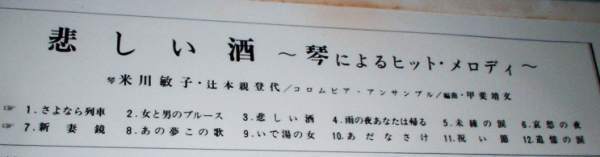 悲しい酒 ～琴によるヒット・メロディ～
琴 米川敏子・辻本親登代／コロムビア・アンサンブル／編曲・甲斐靖文
☞ 1.さよなら列車 2.女と男のブルース 3.悲しい酒 4.雨の夜あなたは帰る 5.未練の涙 6.哀愁の夜
☞ 7.新妻鏡 8.あの夢この歌 9.いで湯の女 10.あだなさけ 11.祝い節 12.追憶の涙